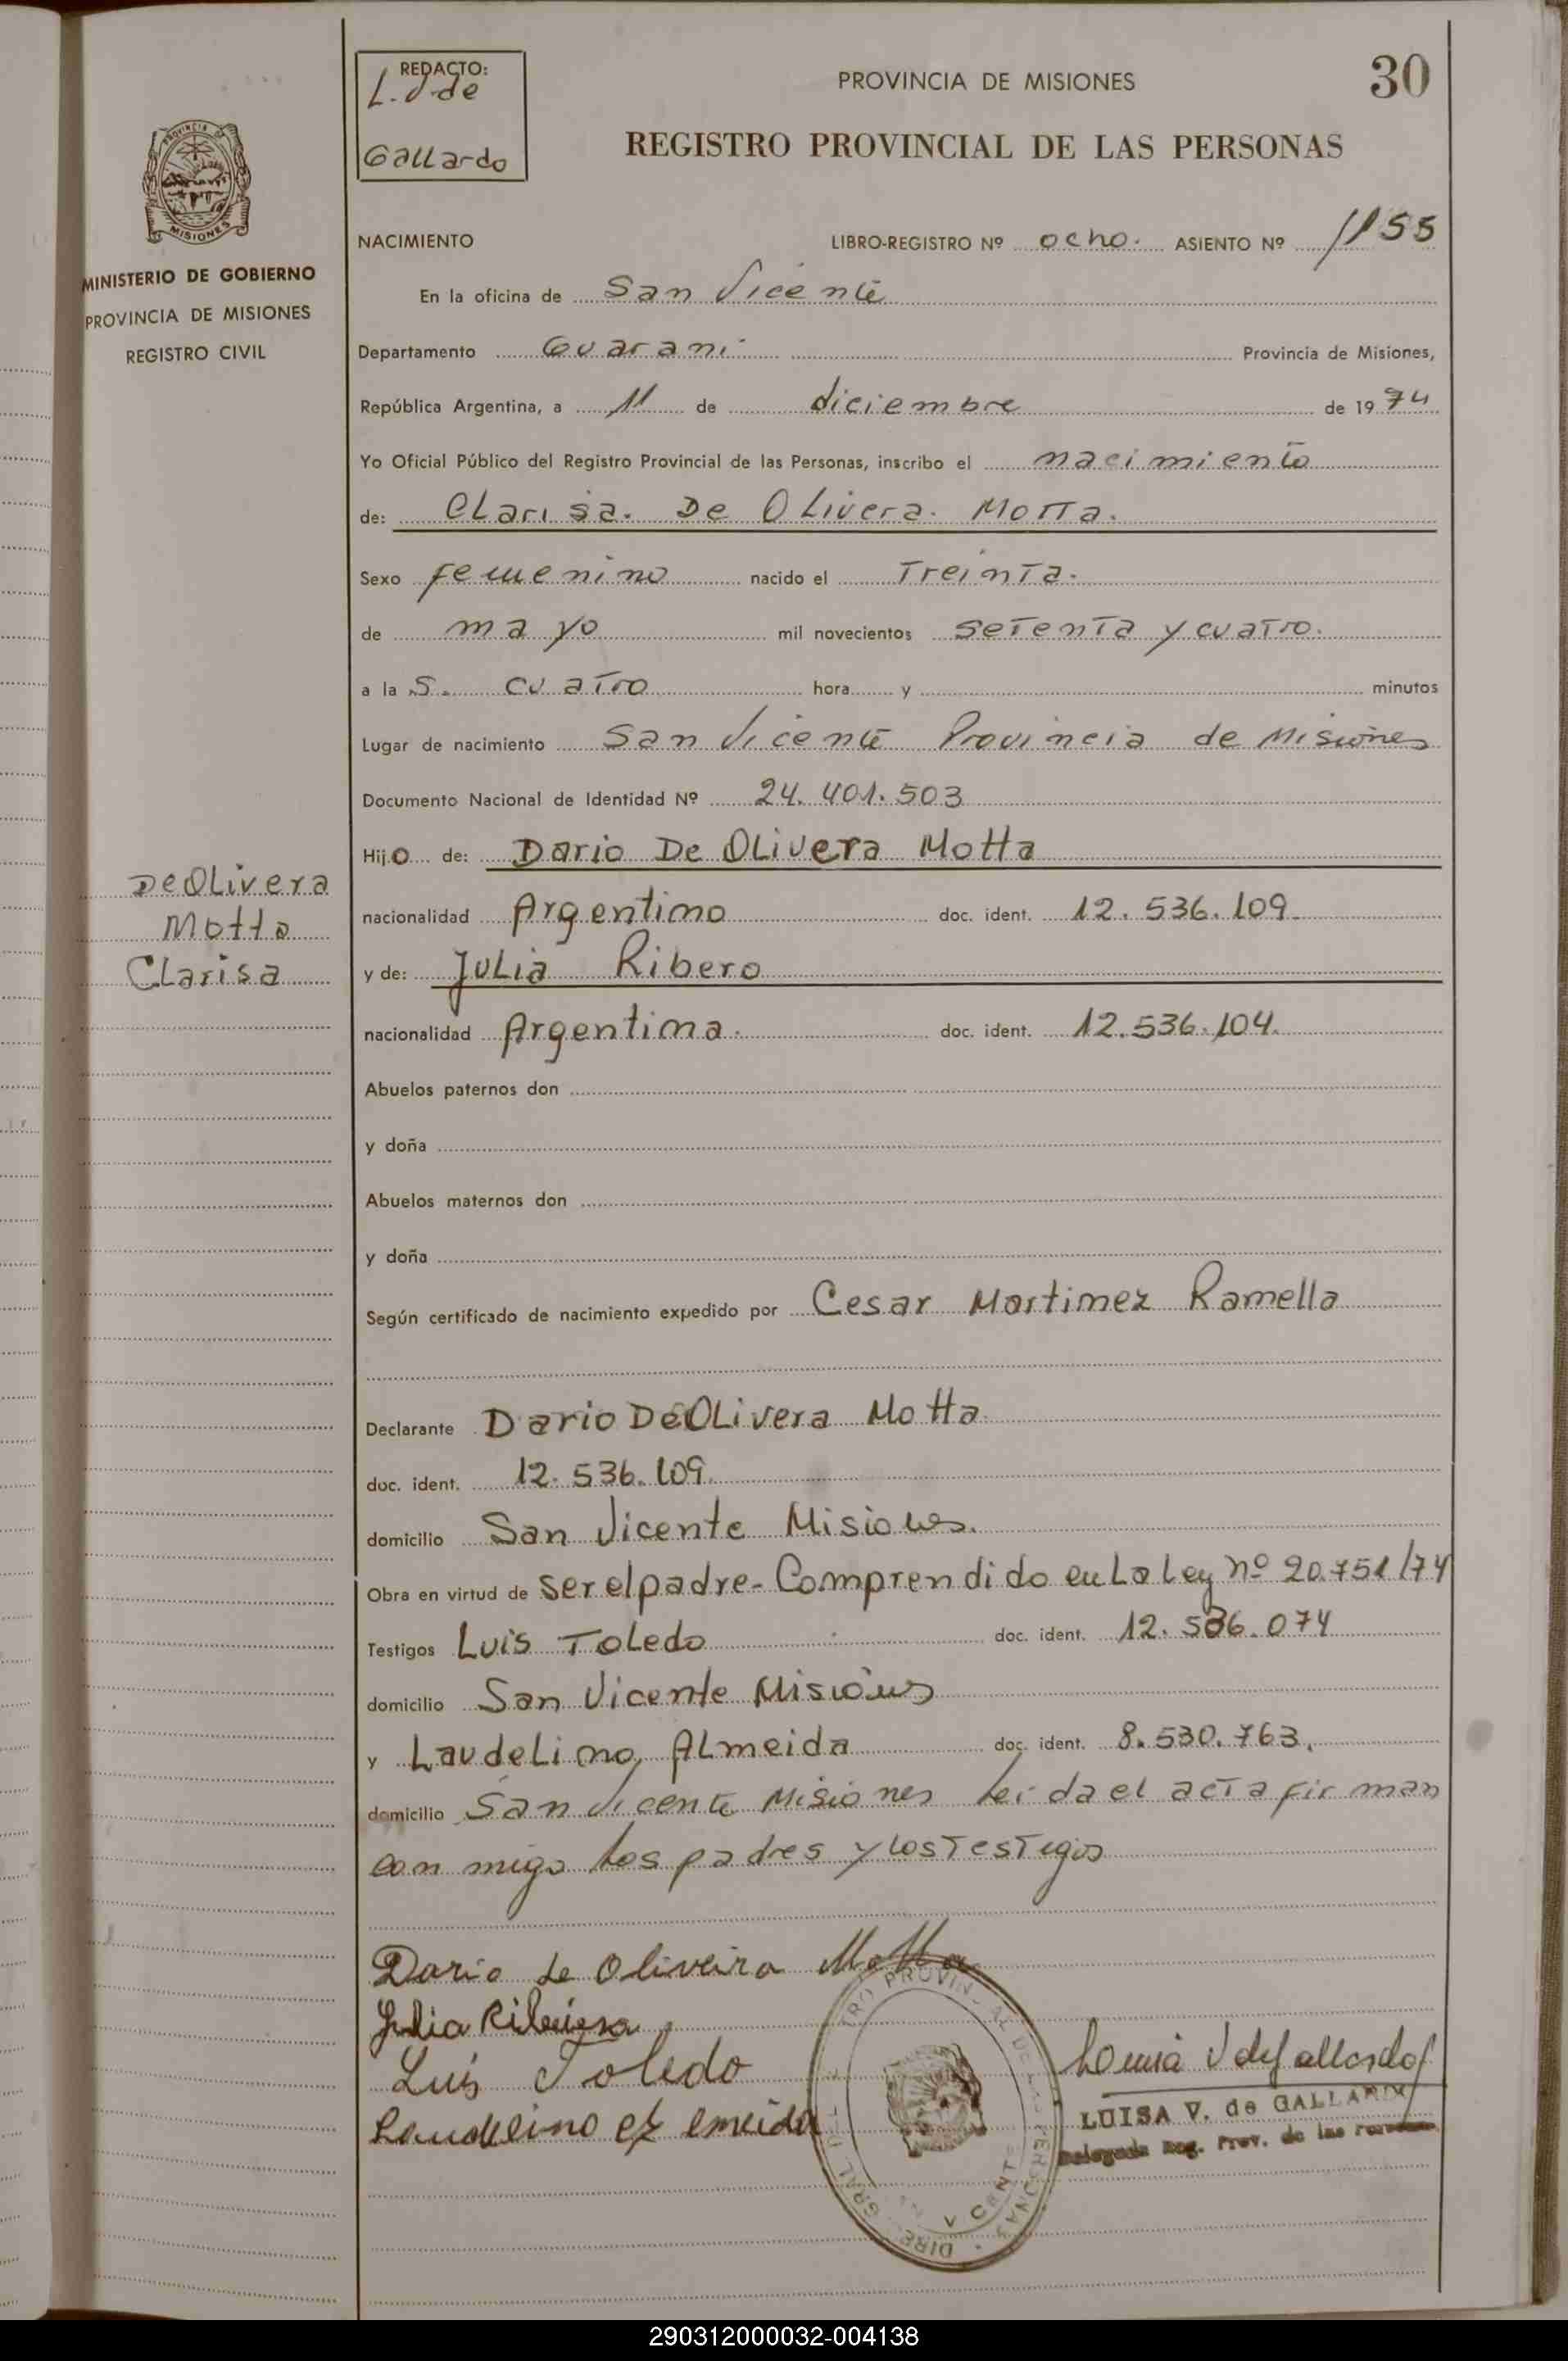 REDACTO:
L. V de
Gallardo
PROVINCIA DE MISIONES
30
REGISTRO PROVINCIAL DE LAS PERSONAS
MISIONES
MINISTERIO DE GOBIERNO
PROVINCIA DE MISIONES
REGISTRO CIVIL
NACIMIENTO LIBRO-REGISTRO Nº ocho. ASIENTO Nº 1155
En la oficina de San Vicente
Departamento Guarani Provincia de Misiones,
República Argentina, a 11 de diciembre de 19 74
Yo Oficial Público del Registro Provincial de las Personas, inscribo el nacimiento
de: Clarisa. De Olivera. Motta.
Sexo femenino nacido el Treinta.
de mayo mil novecientos setenta y cuatro.
a la s. cuatro hora y minutos
Lugar de nacimiento San Vicente Provincia de Misiones
Documento Nacional de Identidad Nº 24.401.503
Hij o de: Dario De Olivera Motta
nacionalidad Argentino doc. ident. 12.536.109.
y de: Julia Ribero
nacionalidad Argentina. doc. ident. 12.536.104.
De Olivera
Motta
Clarisa
Abuelos paternos don
y doña
Abuelos maternos don
y doña
Según certificado de nacimiento expedido por Cesar Martinez Ramella
Declarante Dario De Olivera Motta
doc. ident. 12.536.109.
domicilio San Vicente Misiones.
Obra en virtud de ser el padre- Comprendido en La Ley nº 20.751/74
Testigos Luis Toledo doc. ident. 12.536.074
domicilio San Vicente Misiones
y Laudelino Almeida doc. ident. 8.530.763.
domicilio San Vicente Misiones leida el acta firman
con migo los padres y los testigos
Dario de Oliveira Motta
Julia Ribeira
Luis Toledo
Laudelino
LUISA V. de GALLARDO
Delegada Reg. Prov. de las Personas
290312000032-004138